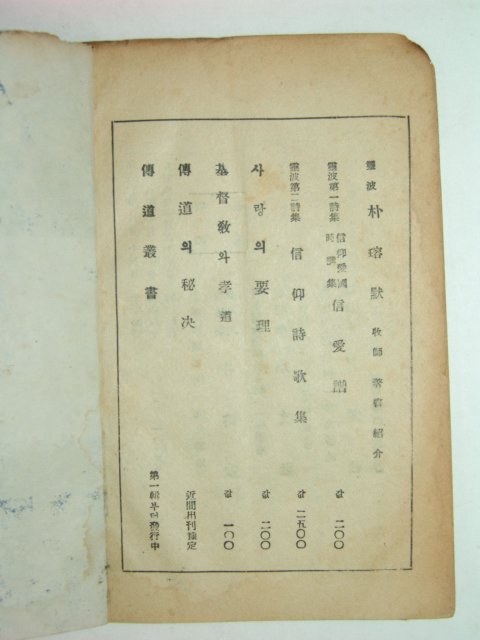 靈波 朴瑢默 牧師 著書 紹介
靈波第一詩集 信仰愛國 時調集 信愛譜 값 二00
靈波第二詩集 信仰詩歌集 값 二五00
사랑의 要理 값 二00
基督敎와 孝道 값 一00
傳道의 秘決 近間出刊豫定
傳道叢書 第一輯부터發行中